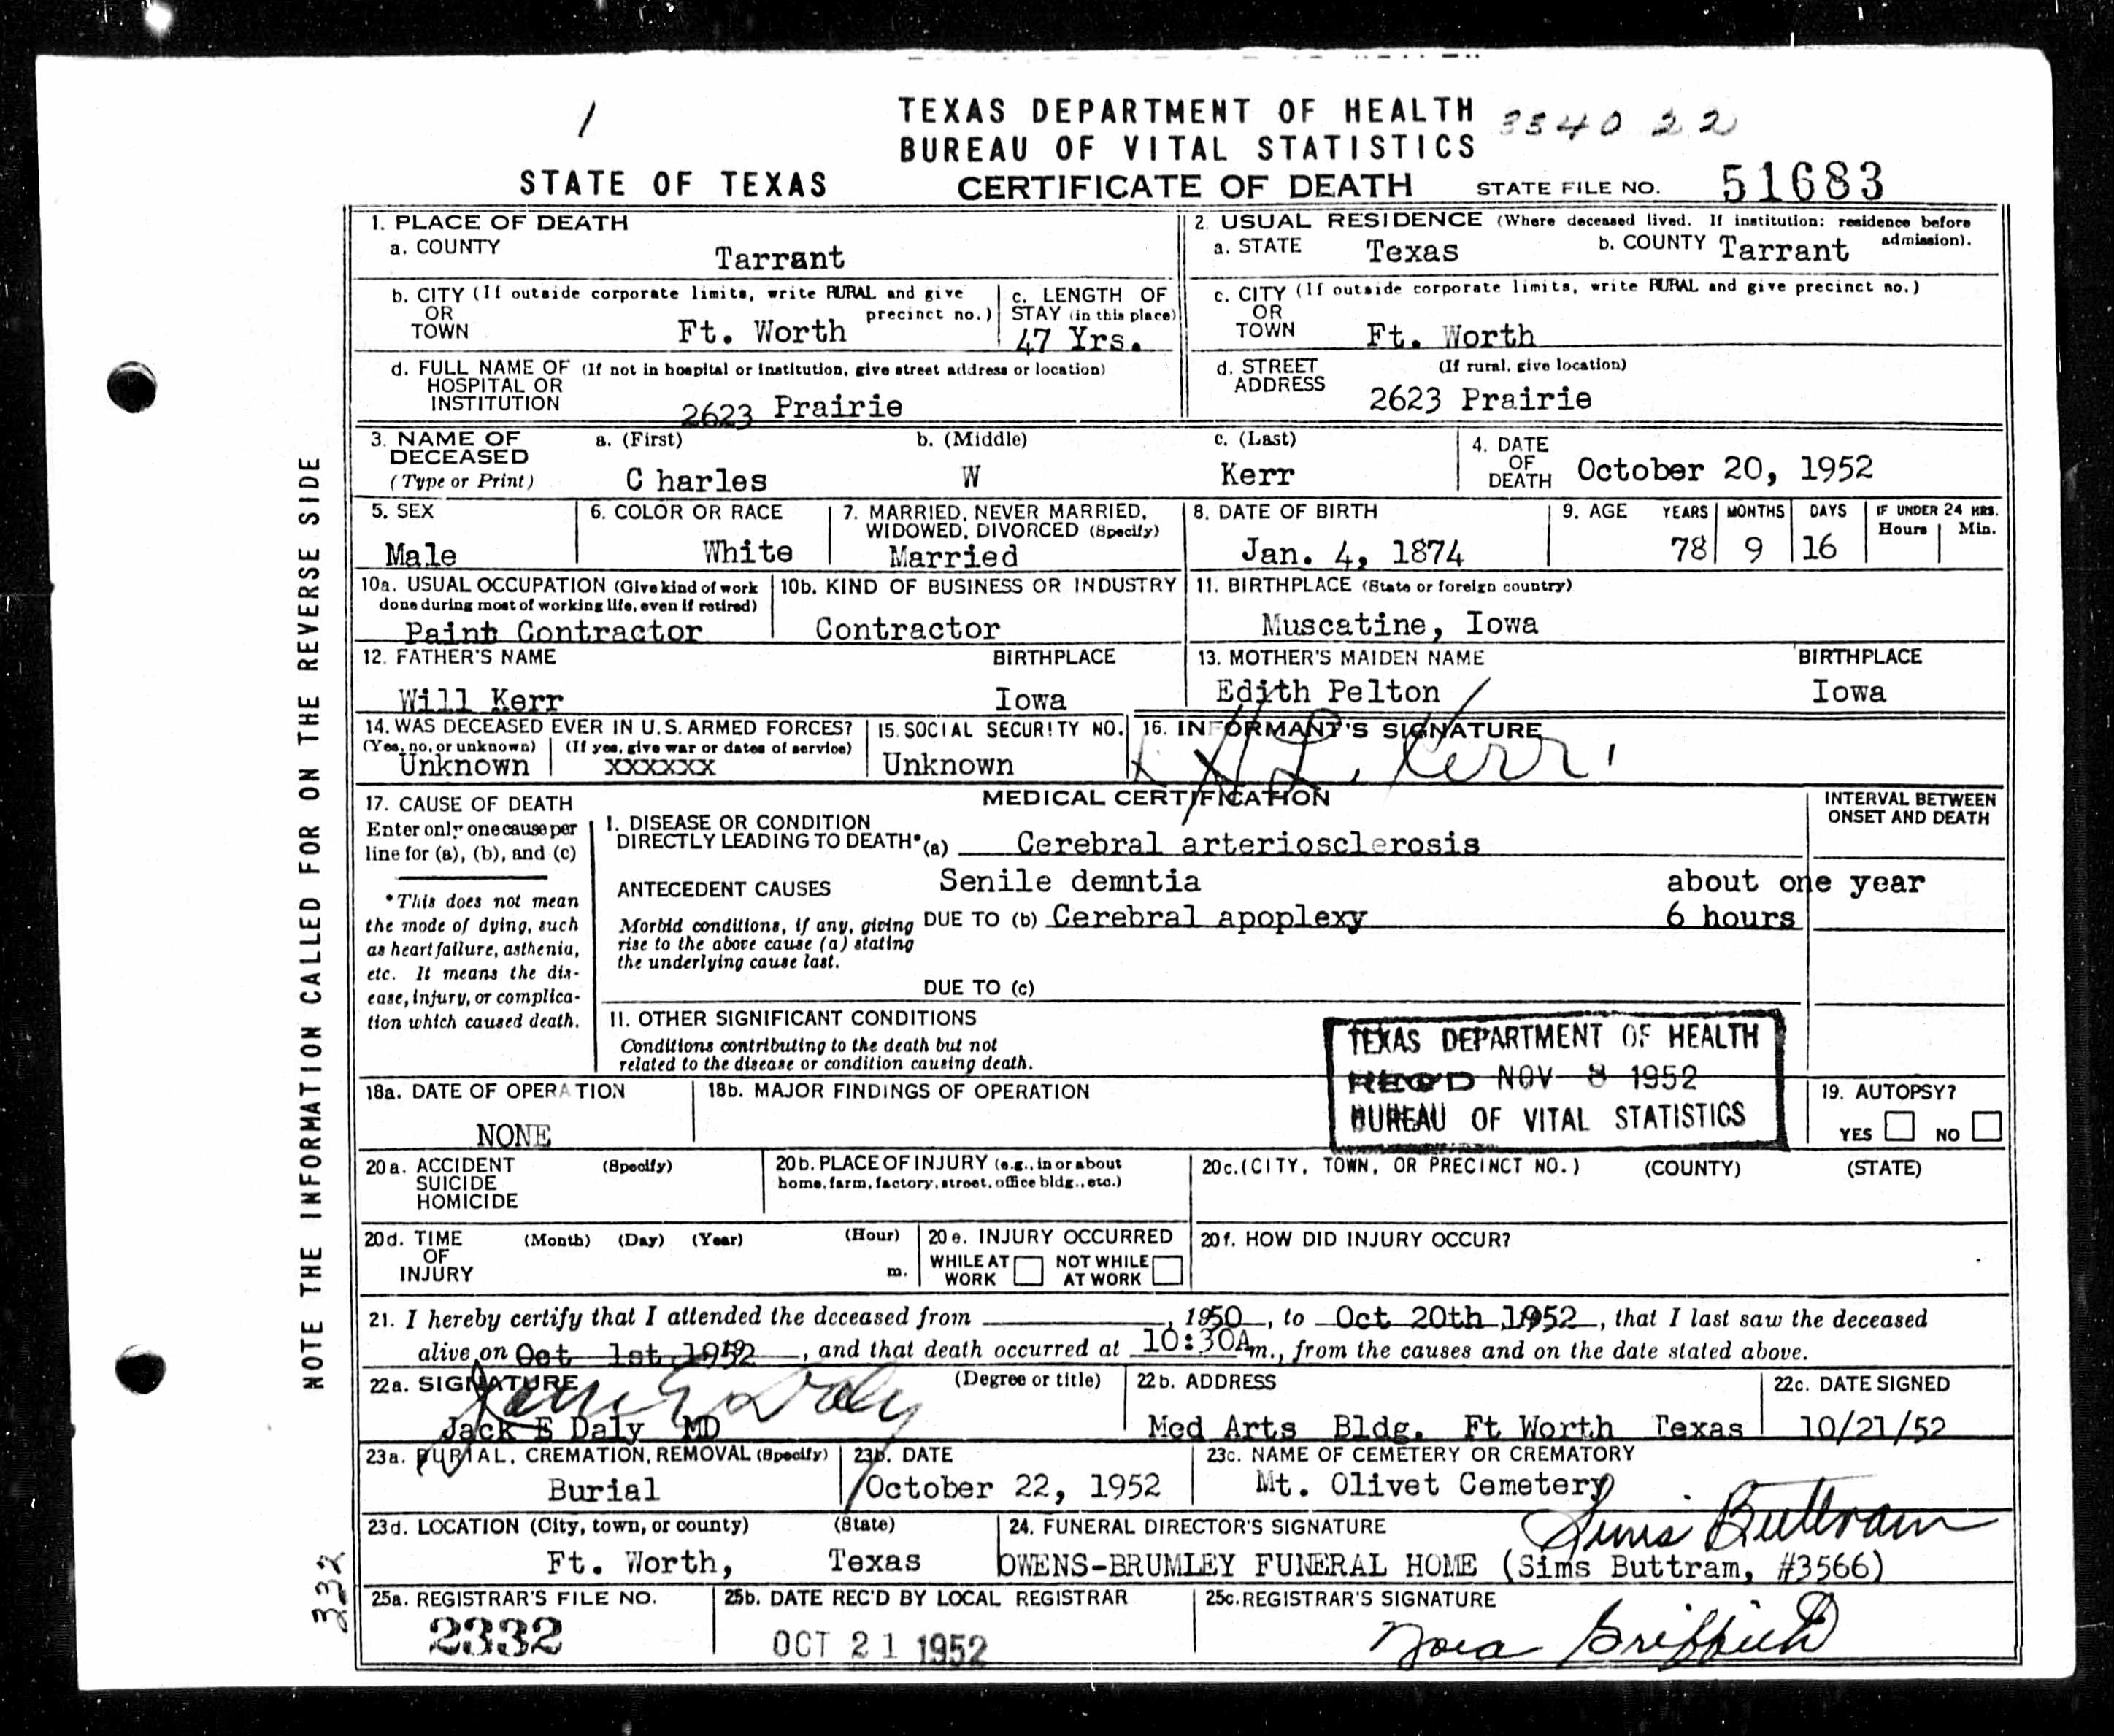 1
TEXAS DEPARTMENT OF HEALTH 334022
BUREAU OF VITAL STATISTICS
STATE OF TEXAS CERTIFICATE OF DEATH STATE FILE NO. 51683
NOTE THE INFORMATION CALLED FOR ON THE REVERSE SIDE
1. PLACE OF DEATH
a. COUNTY Tarrant
2. USUAL RESIDENCE (Where deceased lived. If institution: residence before admission).
a. STATE Texas b. COUNTY Tarrant
b. CITY (If outside corporate limits, write RURAL and give precinct no.)
OR
TOWN Ft. Worth
c. LENGTH OF
STAY (in this place)
47 Yrs.
c. CITY (If outside corporate limits, write RURAL and give precinct no.)
OR
TOWN Ft. Worth
d. FULL NAME OF (If not in hospital or institution, give street address or location)
HOSPITAL OR
INSTITUTION 2623 Prairie
d. STREET (If rural, give location)
ADDRESS 2623 Prairie
3. NAME OF DECEASED
(Type or Print)
a. (First) b. (Middle) c. (Last)
C harles W Kerr
4. DATE
OF
DEATH October 20, 1952
5. SEX
Male
6. COLOR OR RACE
White
7. MARRIED, NEVER MARRIED,
WIDOWED, DIVORCED (Specify)
Married
8. DATE OF BIRTH
Jan. 4, 1874
9. AGE YEARS MONTHS DAYS IF UNDER 24 HRS.
Hours Min.
78 9 16
10a. USUAL OCCUPATION (Give kind of work
done during most of working life, even if retired)
Paint Contractor
10b. KIND OF BUSINESS OR INDUSTRY
Contractor
11. BIRTHPLACE (State or foreign country)
Muscatine, Iowa
12. FATHER'S NAME BIRTHPLACE
Will Kerr Iowa
13. MOTHER'S MAIDEN NAME BIRTHPLACE
Edith Pelton Iowa
14. WAS DECEASED EVER IN U.S. ARMED FORCES?
(Yes, no, or unknown) (If yes, give war or dates of service)
Unknown xxxxxx
15. SOCIAL SECURITY NO.
Unknown
16. INFORMANT'S SIGNATURE
H L. Kerr
MEDICAL CERTIFICATION
17. CAUSE OF DEATH
Enter only one cause per
line for (a), (b), and (c)
*This does not mean
the mode of dying, such
as heart failure, asthenia,
etc. It means the dis-
ease, injury, or complica-
tion which caused death.
INTERVAL BETWEEN
ONSET AND DEATH
I. DISEASE OR CONDITION
DIRECTLY LEADING TO DEATH* (a) Cerebral arteriosclerosis
ANTECEDENT CAUSES Senile demntia about one year
Morbid conditions, if any, giving DUE TO (b) Cerebral apoplexy 6 hours
rise to the above cause (a) stating
the underlying cause last.
DUE TO (c)
II. OTHER SIGNIFICANT CONDITIONS
Conditions contributing to the death but not
related to the disease or condition causing death.
TEXAS DEPARTMENT OF HEALTH
REC'D NOV 8 1952
BUREAU OF VITAL STATISTICS
18a. DATE OF OPERATION
NONE
18b. MAJOR FINDINGS OF OPERATION
19. AUTOPSY?
YES NO
20a. ACCIDENT (Specify)
SUICIDE
HOMICIDE
20b. PLACE OF INJURY (e.g., in or about
home, farm, factory, street, office bldg., etc.)
20c. (CITY, TOWN, OR PRECINCT NO.) (COUNTY) (STATE)
20d. TIME (Month) (Day) (Year) (Hour)
OF
INJURY m.
20e. INJURY OCCURRED
WHILE AT NOT WHILE
WORK AT WORK
20f. HOW DID INJURY OCCUR?
21. I hereby certify that I attended the deceased from , 1950, to Oct 20th, 1952, that I last saw the deceased
alive on Oct 1st 1952, and that death occurred at 10:30A m., from the causes and on the date stated above.
22a. SIGNATURE (Degree or title)
Jack E Daly
Jack E Daly MD
22b. ADDRESS
Med Arts Bldg. Ft Worth Texas
22c. DATE SIGNED
10/21/52
23a. BURIAL, CREMATION, REMOVAL (Specify)
Burial
23b. DATE
October 22, 1952
23c. NAME OF CEMETERY OR CREMATORY
Mt. Olivet Cemetery
23d. LOCATION (City, town, or county) (State)
Ft. Worth, Texas
24. FUNERAL DIRECTOR'S SIGNATURE Sims Buttram
OWENS-BRUMLEY FUNERAL HOME (Sims Buttram, #3566)
25a. REGISTRAR'S FILE NO.
2332
25b. DATE REC'D BY LOCAL REGISTRAR
OCT 21 1952
25c. REGISTRAR'S SIGNATURE
Nora Griffith
232